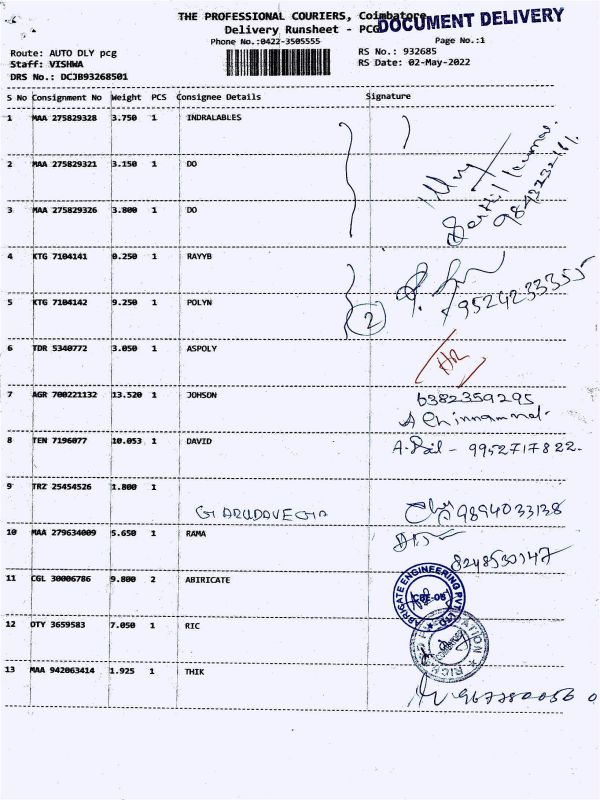 THE PROFESSIONAL COURIERS, Coimbatore
DOCUMENT DELIVERY
Delivery Runsheet - PCG
Phone No.:0422-3505555
Page No.:1
Route: AUTO DLY pcg
RS No.: 932685
Staff: VISHWA
RS Date: 02-May-2022
DRS No.: DCJB93268501
S No Consignment No Weight PCS Consignee Details Signature
1 MAA 275829328 3.750 1 INDRALABLES
2 MAA 275829321 3.150 1 DO
Senthil kumar
3 MAA 275829326 3.800 1 DO
4 KTG 7104141 0.250 1 RAYYB
9524233355
5 KTG 7104142 9.250 1 POLYN
2
6 TDR 5340772 3.050 1 ASPOLY
7 AGR 700221132 13.520 1 JOHSON
6382359295
A Chinnammal.
8 TEN 7196077 10.053 1 DAVID
9952717822.
9 TRZ 25454526 1.800 1
GARUDAVEGA
9894033138
10 MAA 279634009 5.650 1 RAMA
8248530147
11 CGL 30006786 9.800 2 ABIRICATE
ABRIGATE ENGINEERING PVT LTD
CBE-05
12 OTY 3659583 7.050 1 RIC
13 MAA 942063414 1.925 1 THIK